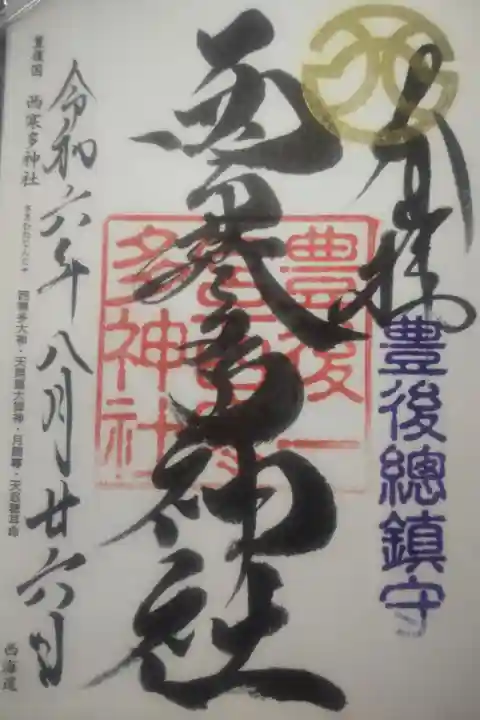 奉拝
豊後總鎮守
西寒多神社
豊後一
多神社
令和六年八月廿六日
豊後国 西寒多神社 ささむたじんじゃ 西寒多大神・天照皇大御神・月読尊・天忍穂耳命 西海道